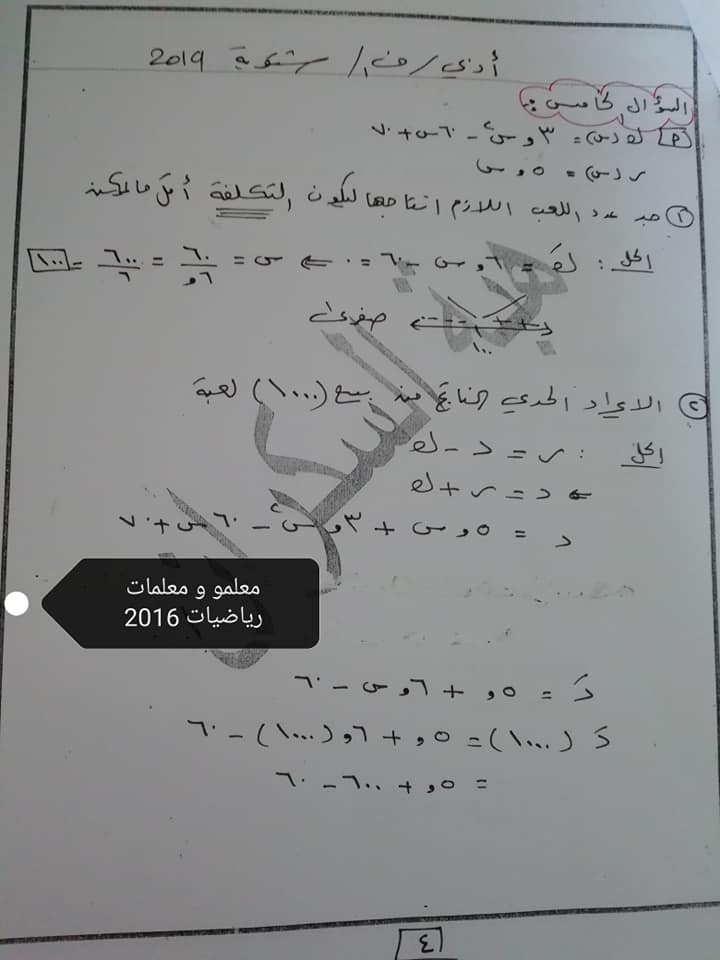 أدبي / ف١ / شتوية 2019
السؤال الخامس :-
P ك(س) = ٣و س٢ - ٦٠س + ٧٠
ر(س) = ٥و س
① جد عدد اللعب اللازم انتاجها لتكون التكلفة أقل ما يمكن
الحل : كَ = ٦و س - ٦٠ = ٠ ← س = ٦٠/٦و = ٦٠٠/٦ = ١٠٠
صغرى ---- ++
١٠٠
② الايراد الحدي الناتج من بيع (١٠٠٠) لعبة
الحل : ر = د - ك
← د = ر + ك
د = ٥و س + ٣و س٢ - ٦٠س + ٧٠
معلمو و معلمات
رياضيات 2016
دَ = ٥و + ٦و س - ٦٠
دَ (١٠٠٠) = ٥و + ٦و (١٠٠٠) - ٦٠
= ٥و + ٦٠٠ - ٦٠
٤